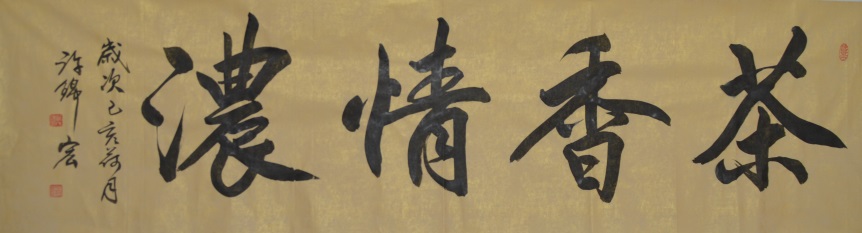 茶香情濃
歲次己亥荷月
許鐸宏